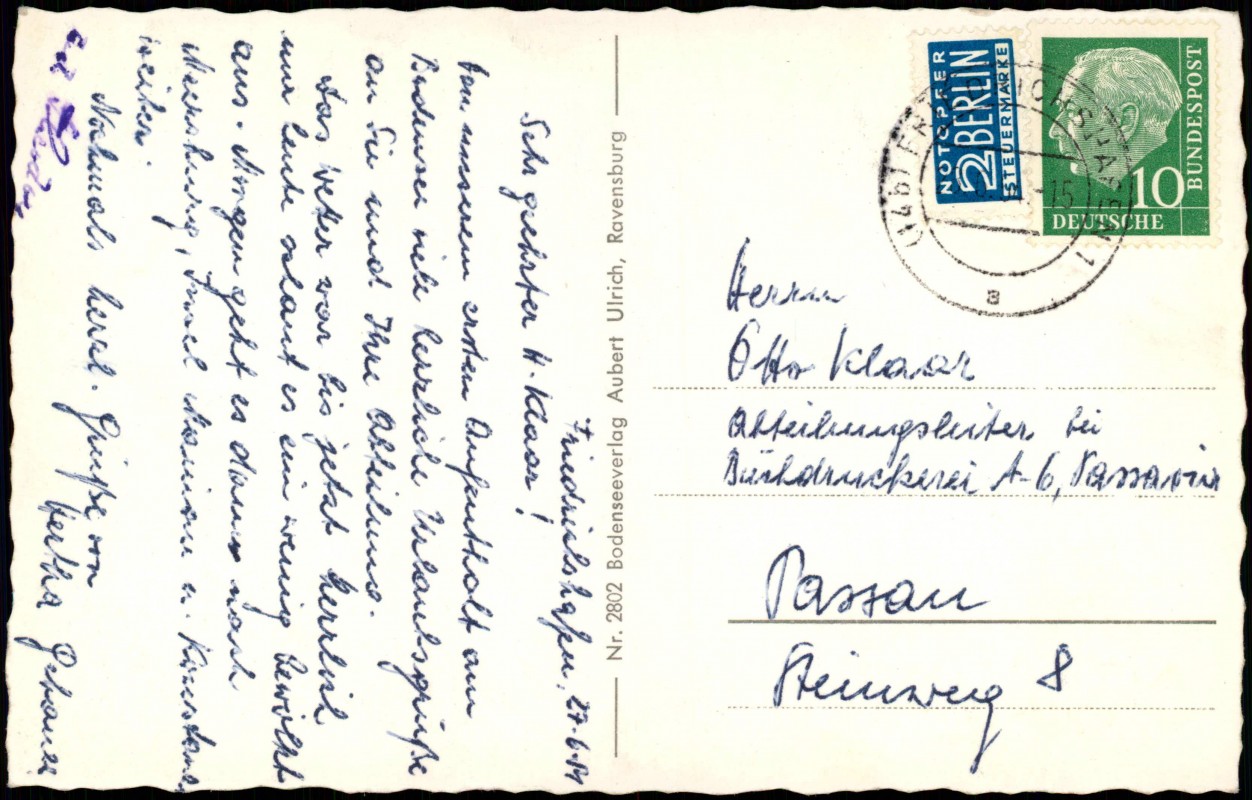 Friedrichshafen, 27.6.
Sehr geehrter H. Klaar!
Von unserem ersten Aufenthalt am
Bodensee viele herzliche Urlaubsgrüße
an Sie und Ihre Abteilung.
Das Wetter war bis jetzt herrlich
nur heute schaut es ein wenig bewölkt
aus. Morgen geht es dann nach
Meersburg, Insel Mainau u. Konstanz
weiter.
Nochmals herzl. Grüße von
Hertha
Nr. 2802 Bodenseeverlag Aubert Ulrich, Ravensburg
NOTOPFER
2 BERLIN
STEUERMARKE
DEUTSCHE
BUNDESPOST
10
a
Herrn
Otto Klaar
Abteilungsleiter bei
Buchdruckerei A-G, Passavia
Passau
Steinweg 8